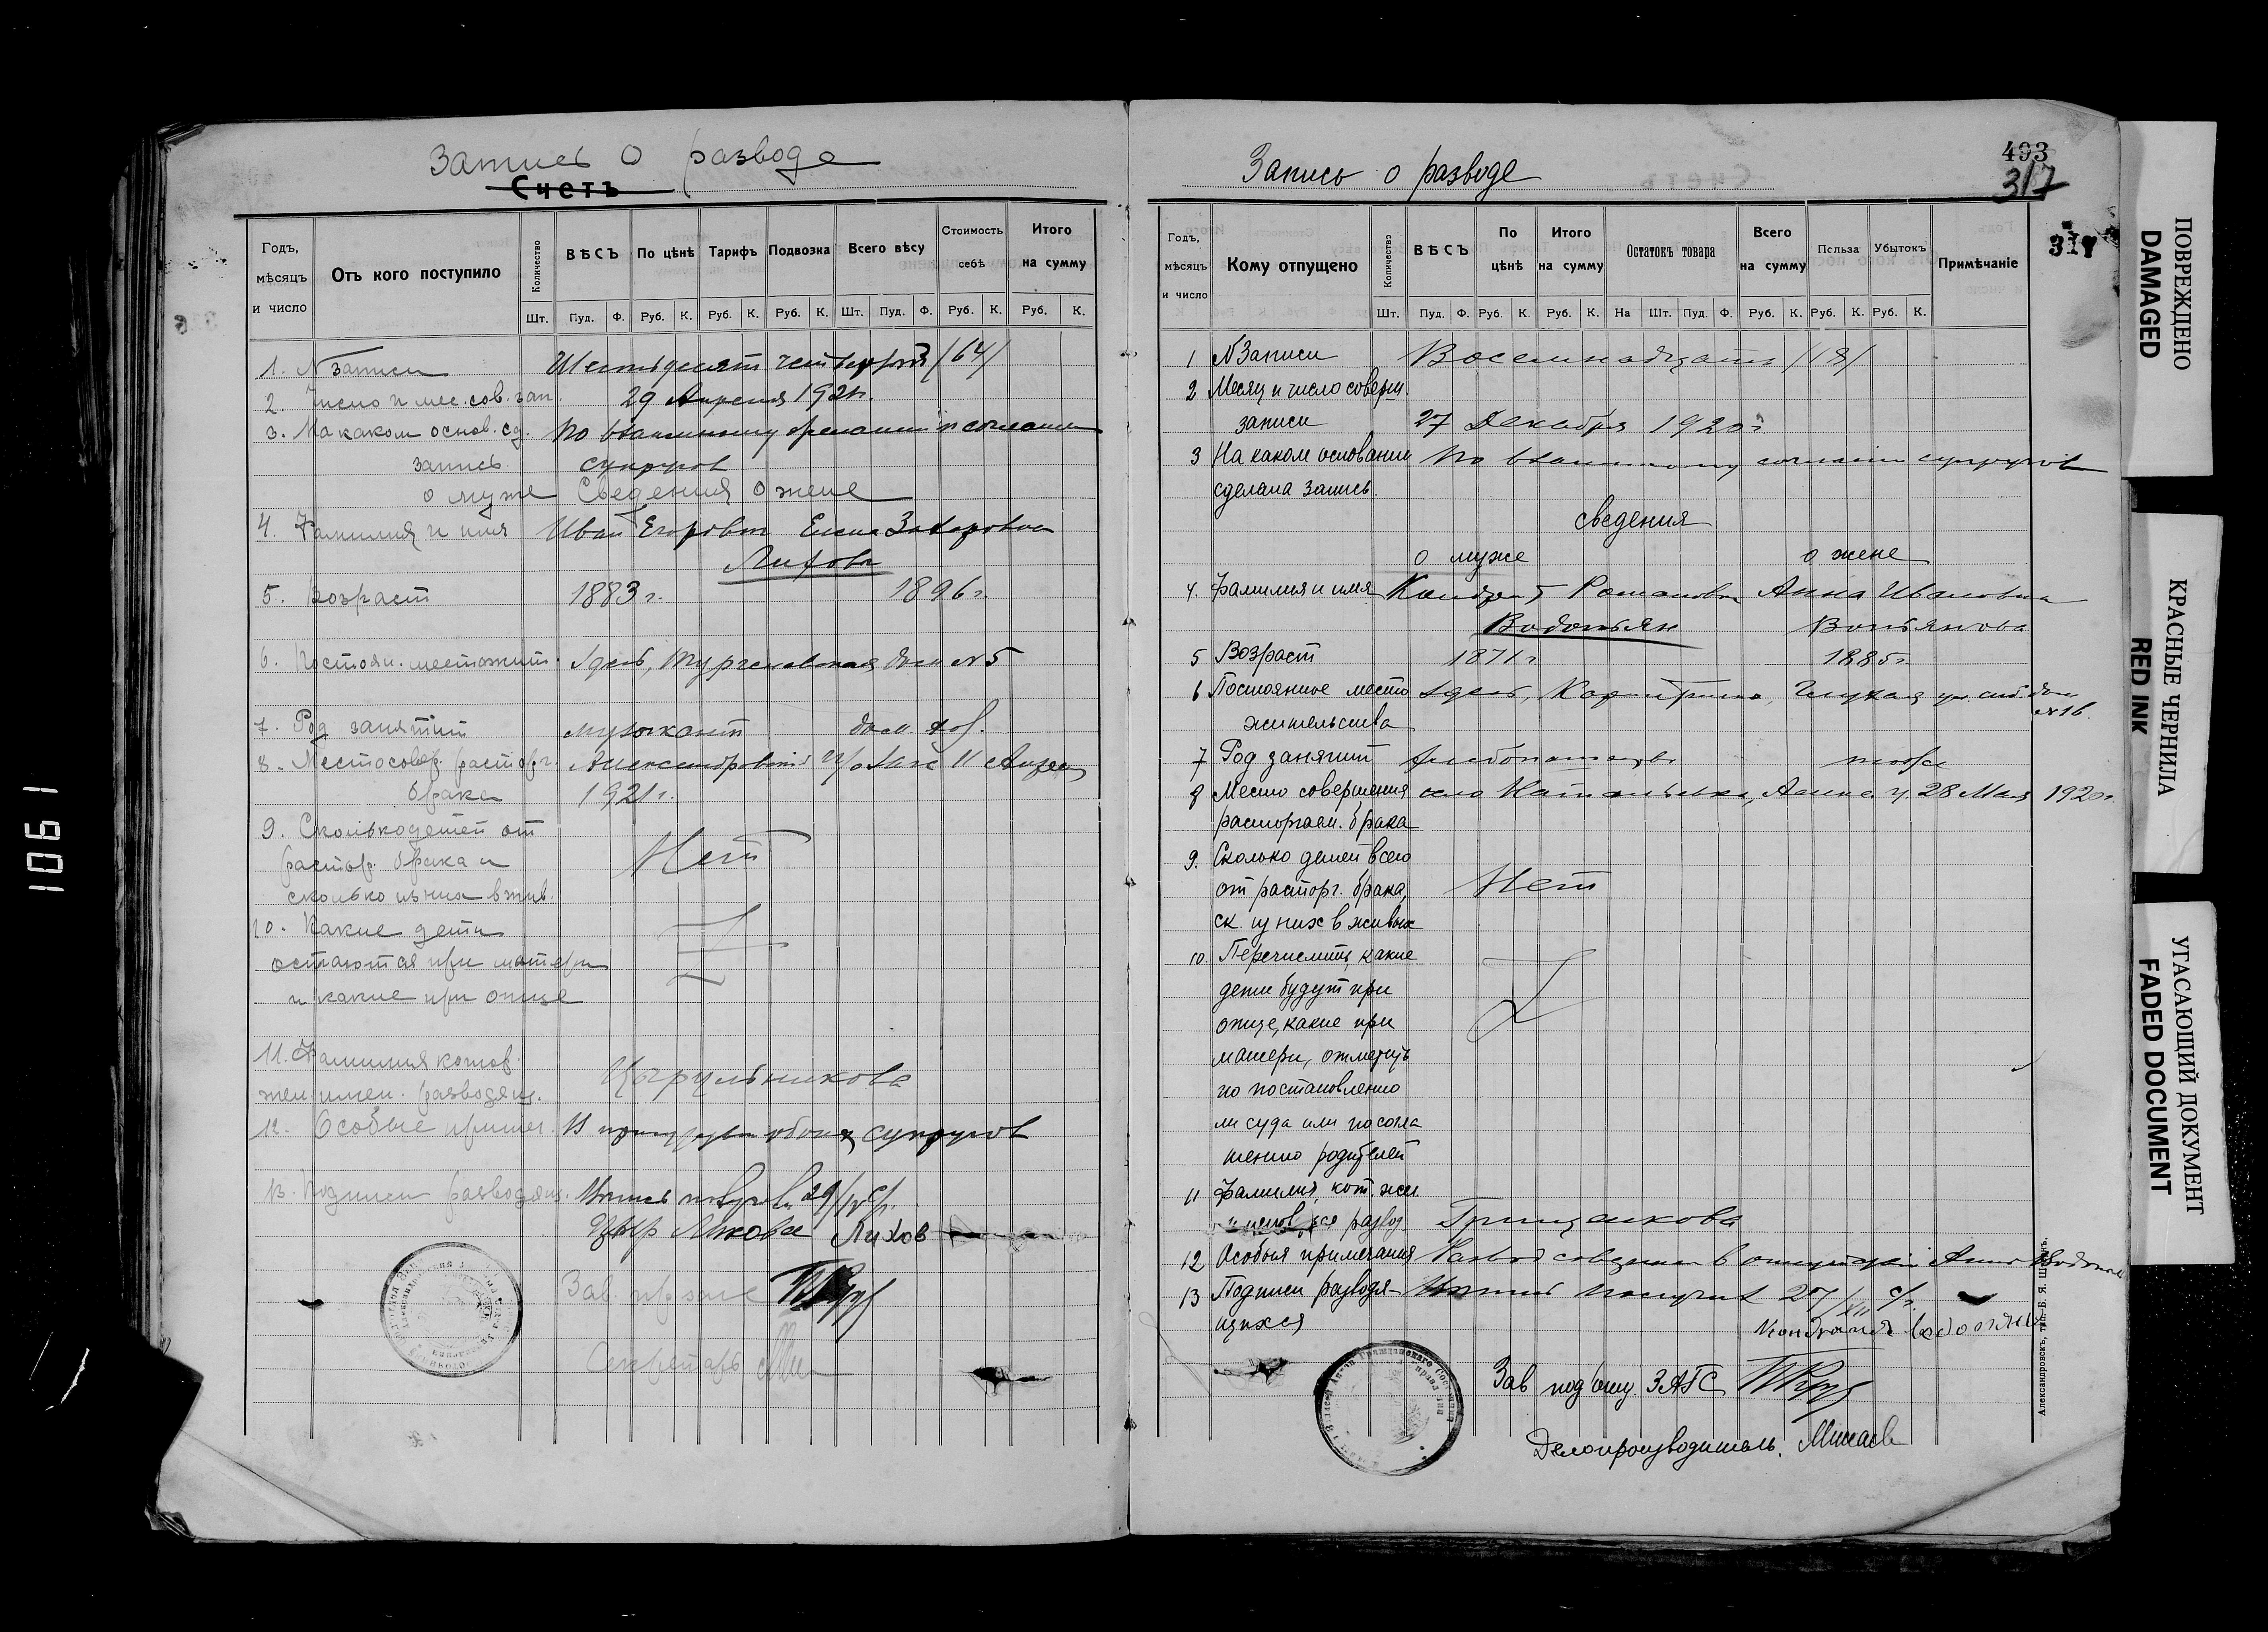 1061
Запись о разводе
Счетъ
Годъ, мѣсяцъ и число
Отъ кого поступило
Количество
ВѢСЪ
По цѣнѣ
Тарифъ
Подвозка
Всего вѣсу
Стоимость себѣ
Итого на сумму
Шт. Пуд. Ф. Руб. К. Руб. К. Руб. К. Шт. Пуд. Ф. Руб. К. Руб. К.
1. N записи Шестьдесят четвертая /64/
2. Число и мес. сов. зап. 29 Апреля 1921г.
3. На каком основ. сд. По взаимному желанию и согласию
запись супругов
о муже Сведения о жене
4. Фамилия и имя Иван Егорович Елена Захаровна
Лиховы
5. Возраст 1883 г. 1896 г.
6. Постоян. местожит. Здесь, Тургеневская дом N 5
7. Род занятий музыкант дом. хоз.
8. Место совер. расторг. Александровский 11 Апреля
брака 1921 г.
9. Сколько детей от
расторг. брака и Нет
сколько из них в жив.
10. Какие дети
остаются при матери
и какие при отце
11. Фамилия котор.
жел. имен. разводящ. Цырульникова
12. Особые примеч. В присутствии обоих супругов
13. Подписи разводящ. 29/IV с/г.
Лихова Лихов
Зав.
Секретарь
Запись о разводе
493
317
318
Годъ, мѣсяцъ и число
Кому отпущено
Количество
ВѢСЪ
По цѣнѣ
Итого на сумму
Остатокъ товара
Всего на сумму
Польза
Убытокъ
Примѣчаніе
Шт. Пуд. Ф. Руб. К. Руб. К. На Шт. Пуд. Ф. Руб. К. Руб. К. Руб. К.
1 N Записи Восемнадцать /18/
2 Месяц и число соверш.
записи 27 Декабря 1920 г
3 На каком основании по взаимному согласию супругов
сделана запись.
сведения
о муже о жене
4. Фамилия и имя Кондрат Романович Анна Ивановна
Водопьян
5 Возраст 1871 г 1885 г.
6 Постоянное место здесь, дом
жительства N 16.
7 Род занятий хлебопашец тоже
8 Место совершения село Натальевка, 28 Мая 1920 г.
расторгаем. брака
9. Сколько детей всего
от расторг. брака, Нет
ск. из них в живых
10. Перечислить, какие
дети будут при
отце, какие при
матери, отметить
по постановлению
ли суда или по согла
шению родителей
11 Фамилия, кот. жел
развод. Грищенкова
12 Особыя примечания Развод совершен в отсутствии Анны
13 Подписи разводя- 27/XII с/г.
щихся
Зав под'отд. ЗАГС
Делопроизводитель.
Александровскъ, тип. Б. Я.
ПОВРЕЖДЕНО
DAMAGED
КРАСНЫЕ ЧЕРНИЛА
RED INK
УГАСАЮЩИЙ ДОКУМЕНТ
FADED DOCUMENT